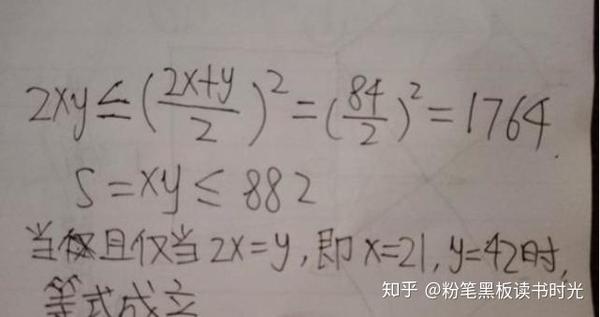 2xy≤(\frac{2x+y}{2})^2=(\frac{84}{2})^2=1764.
S=xy≤882
当仅且仅当2x=y,即x=21,y=42时,
等式成立
知乎 @粉笔黑板读书时光